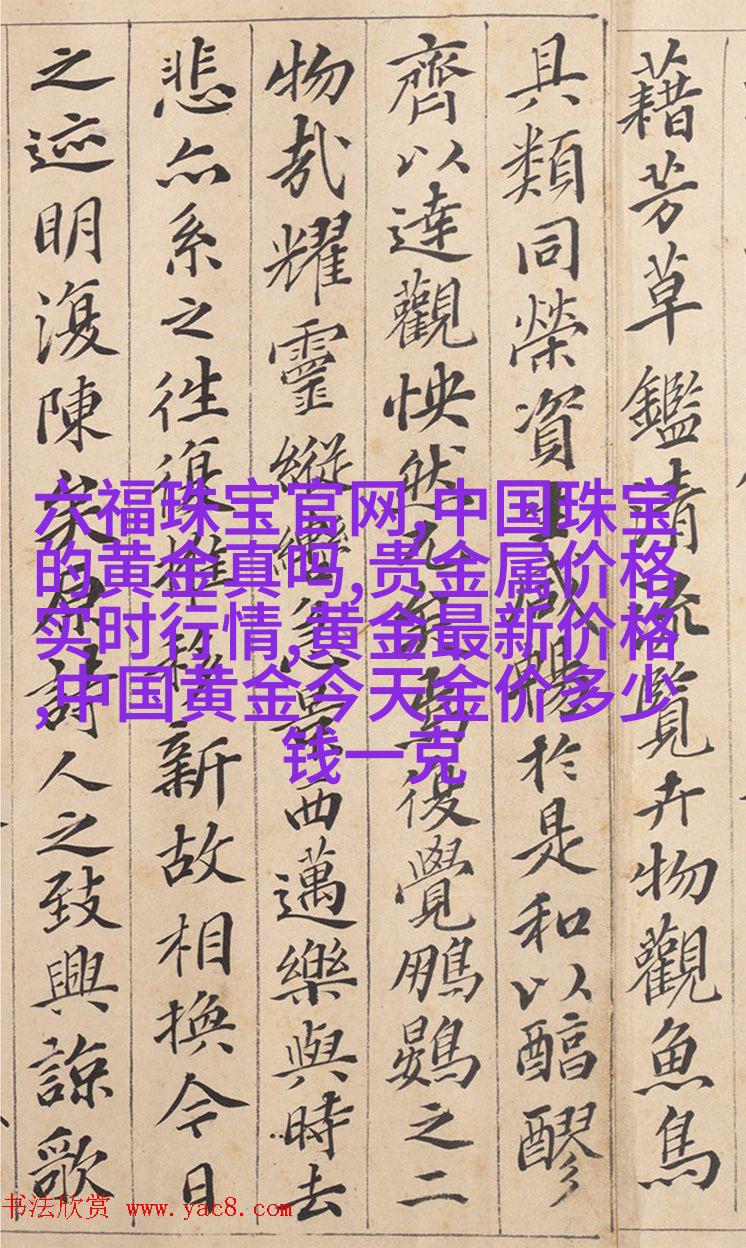 藉芳草鑑清流覽卉物觀魚鳥
具類同榮資生咸暢於是和以醕醪
齊以達觀怏然兀焉復覺鵬鷃之二
物哉耀靈縱轡急景西邁樂與時去
悲亦系之往復推移新故相換今日
之迹明復陳矣原詩人之致興諒歌
六福珠宝官网,中国珠宝
的黄金真吗,贵金属价格
实时行情,黄金最新价格
,中国黄金今天金价多少
钱一克
书法欣赏 www.yac8.com